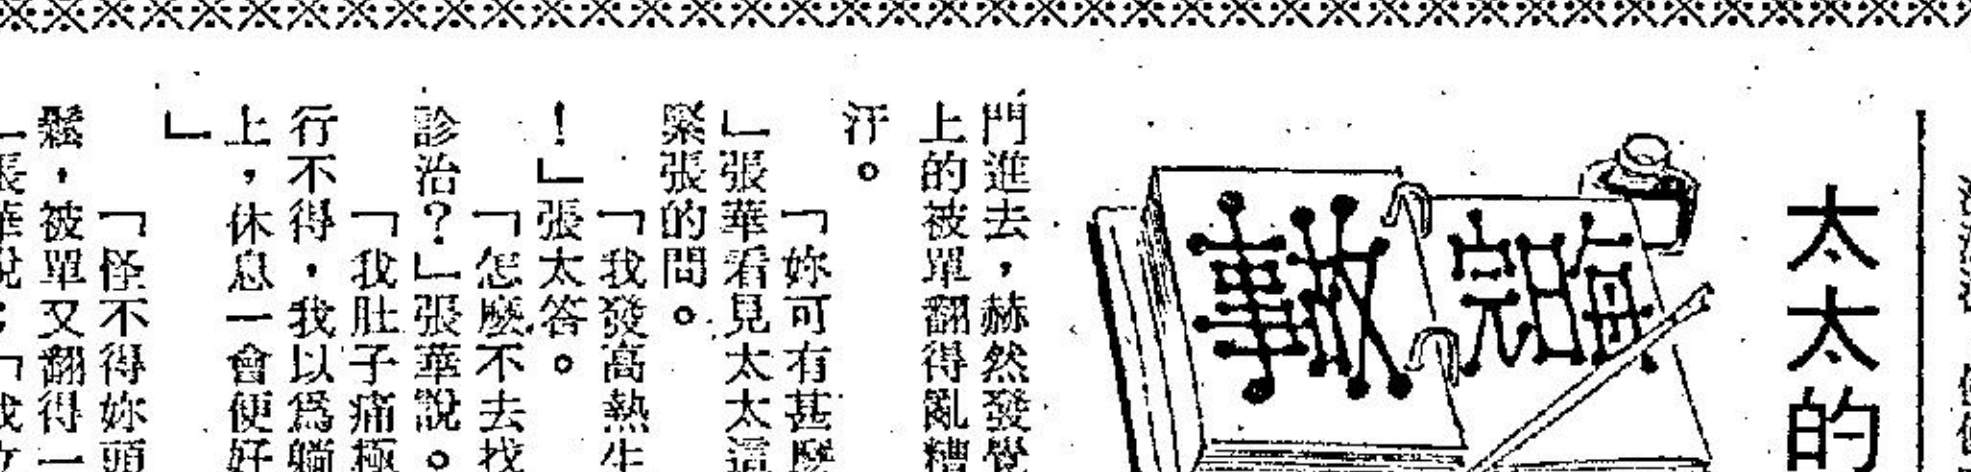 太太的
每日完
故事
門進去，赫然發覺
上的被單翻得亂糟
汗。
「妳可有甚麼
」張華看見太太這
緊張的問。
「我發高熱生
！」張太答。
「怎麼不去找
診治？」張華說。
「我肚子痛極
行不得，我以爲躺
上，休息一會便好
」
「怪不得妳頭
鬆，被單又翻得一